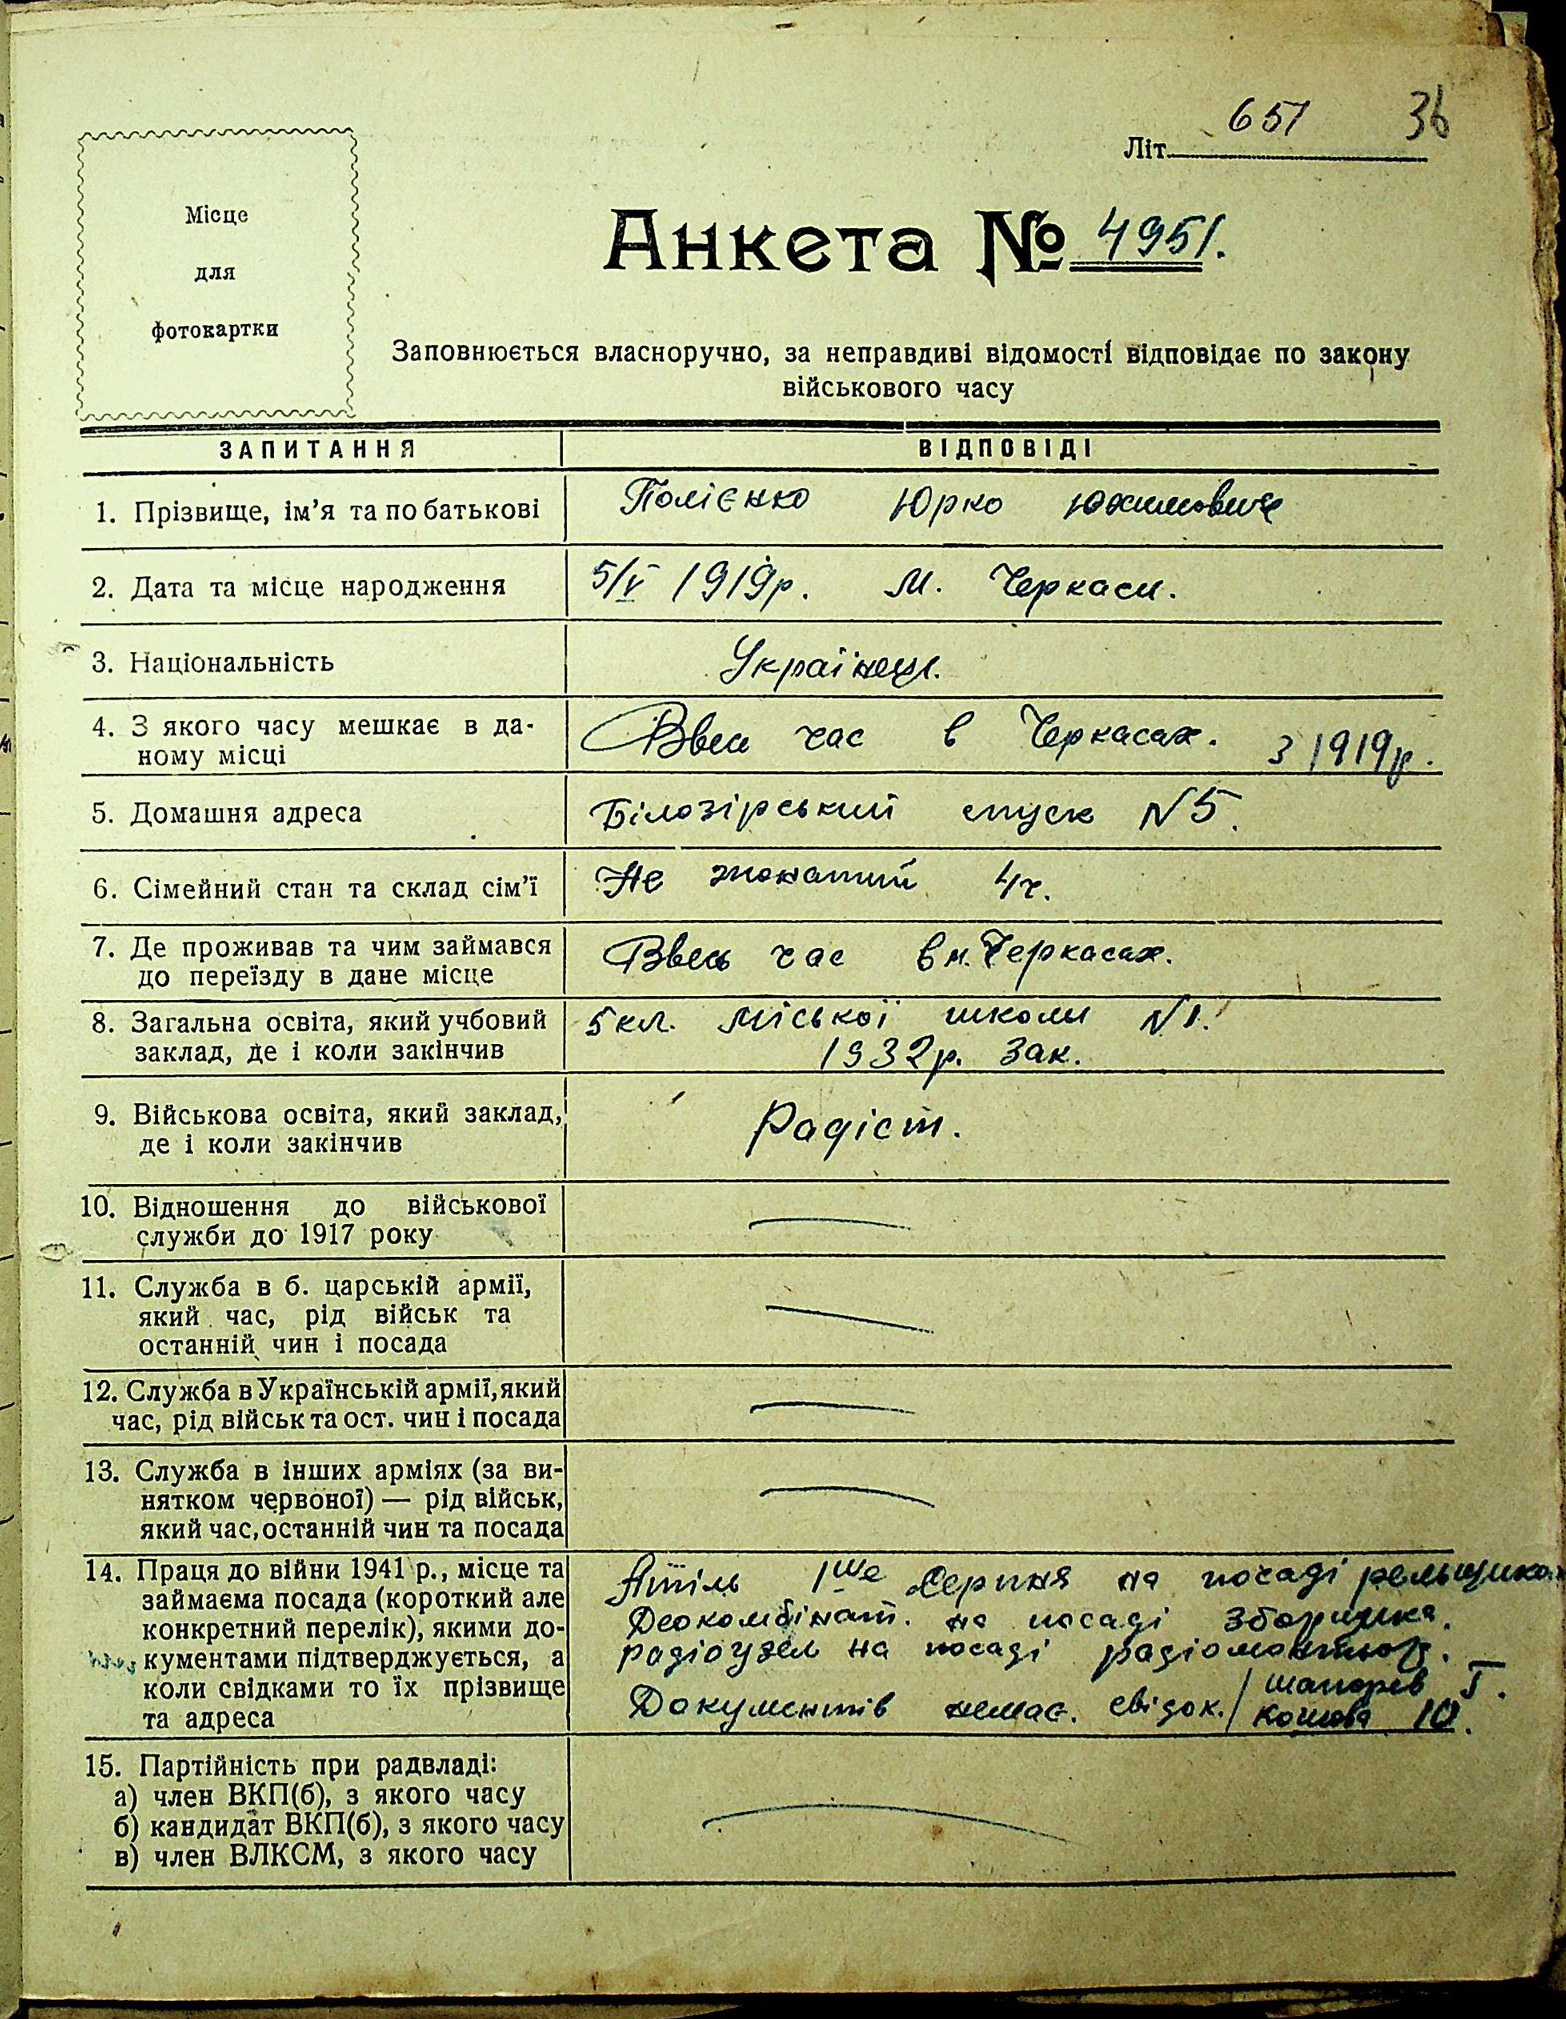 651 36
Літ.
Місце
для
фотокартки
Анкета № 4951.
Заповнюється власноручно, за неправдиві відомості відповідає по закону
військового часу
ЗАПИТАННЯ ВІДПОВІДІ
1. Прізвище, ім'я та по батькові Полієнко Юрко Юхимович
2. Дата та місце народження 5/V 1919р. м. Черкаси.
3. Національність Українец.
4. З якого часу мешкає в да-
ному місці Ввесь час в Черкасах. з 1919р.
5. Домашня адреса Білозірський спуск №5.
6. Сімейний стан та склад сім'ї Не жонатий 4ч.
7. Де проживав та чим займався
до переїзду в дане місце Ввесь час в м. Черкасах.
8. Загальна освіта, який учбовий 5 кл. Міської школи №1.
заклад, де і коли закінчив 1932р. Зак.
9. Військова освіта, який заклад,
де і коли закінчив Радіст.
10. Відношення до військової
служби до 1917 року
11. Служба в б. царській армії,
який час, рід військ та
останній чин і посада
12. Служба в Українській армії, який
час, рід військ та ост. чин і посада
13. Служба в інших арміях (за ви-
нятком червоної) — рід військ,
який час, останній чин та посада
14. Праця до війни 1941 р., місце та Артіль 1ше Серпня на посаді
займаєма посада (короткий але Деокомбінат. на посаді зборщика.
конкретний перелік), якими до- радіоузел на посаді радіомонтьор.
кументами підтверджується, а
коли свідками то їх прізвище Документів немає. свідок. / Шапорев І.
та адреса Ю.
15. Партійність при радвладі:
а) член ВКП(б), з якого часу
б) кандидат ВКП(б), з якого часу
в) член ВЛКСМ, з якого часу